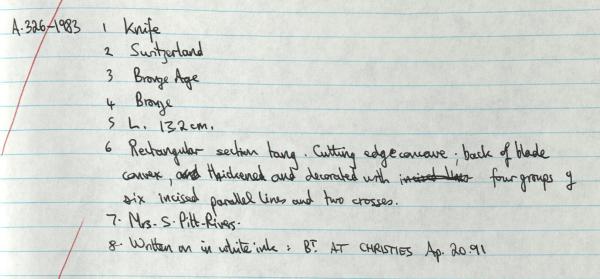 A.326-1983 1 Knife
2 Switzerland
3 Bronze Age
4 Bronze
5 L. 13.2 cm.
6 Rectangular section tang. Cutting edge concave; back of blade
convex, and thickened and decorated with incised lines four groups of
six incised parallel lines and two crosses.
7. Mrs. S. Pitt-Rivers.
8. Written on in white ink: BT. AT CHRISTIES Ap. 20.91